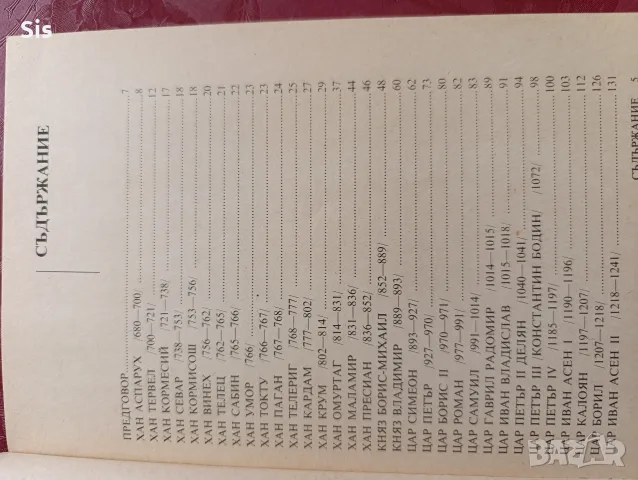 Sis
СЪДЪРЖАНИЕ
ПРЕДГОВОР 7
ХАН АСПАРУХ /680—700/ 8
ХАН ТЕРВЕЛ /700—721/ 12
ХАН КОРМЕСИЙ /721—738/ 17
ХАН СЕВАР /738—753/ 18
ХАН КОРМИСОШ /753—756/ 18
ХАН ВИНЕХ /756—762/ 20
ХАН ТЕЛЕЦ /762—765/ 21
ХАН САБИН /765—766/ 22
ХАН УМОР /766/ 23
ХАН ТОКТУ /766—767/ 23
ХАН ПАГАН /767—768/ 24
ХАН ТЕЛЕРИГ /768—777/ 25
ХАН КАРДАМ /777—802/ 27
ХАН КРУМ /802—814/ 29
ХАН ОМУРТАГ /814—831/ 37
ХАН МАЛАМИР /831—836/ 44
ХАН ПРЕСИАН /836—852/ 46
КНЯЗ БОРИС-МИХАИЛ /852—889/ 48
КНЯЗ ВЛАДИМИР /889—893/ 60
ЦАР СИМЕОН /893—927/ 62
ЦАР ПЕТЪР /927—970/ 73
ЦАР БОРИС II /970—971/ 80
ЦАР РОМАН /977—991/ 82
ЦАР САМУИЛ /991—1014/ 83
ЦАР ГАВРИЛ РАДОМИР /1014—1015/ 89
ЦАР ИВАН ВЛАДИСЛАВ /1015—1018/ 91
ЦАР ПЕТЪР II ДЕЛЯН /1040—1041/ 94
ЦАР ПЕТЪР III /КОНСТАНТИН БОДИН/ /1072/ 98
ЦАР ПЕТЪР IV /1185—1197/ 100
ЦАР ИВАН АСЕН I /1190—1196/ 103
ЦАР КАЛОЯН /1197—1207/ 112
ЦАР БОРИЛ /1207—1218/ 126
ЦАР ИВАН АСЕН II /1218—1241/ 131
СЪДЪРЖАНИЕ 5
bazar.bg